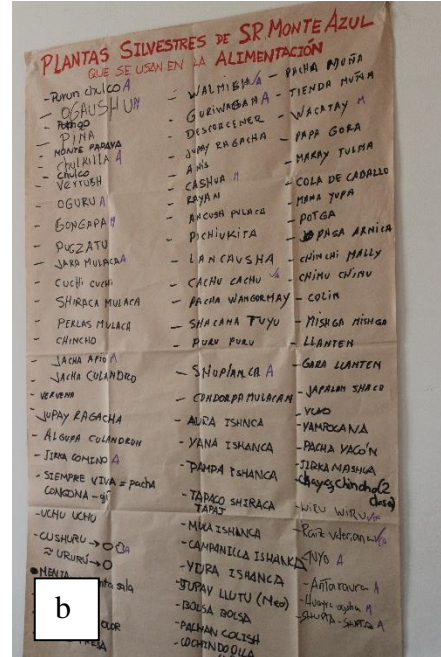 PLANTAS SILVESTRES DE SR MONTE AZUL
QUE SE USAN EN LA ALIMENTACIÓN
- Purun chulco A
- OGAUSHU A
- PIÑA
- MONTE PAPAYA
- CHULKILLA A
- chulco
- VERRUSH
- OGURU A
- GONGAPA M
- PUCZATU
- JARA MULACA A
- CUCHI CUCHI
- SHIRACA MULACA
PERLAS MULACA
- CHINCHO
- JACHA APIO A
- JACHA CULANDRO
- VERVENA
- JUPAY RAGACHA
- ALGUPA CULANDRON
- JIRKA COMINO A
- SIEMPRE VIVA = pacha
CONGONA -
- UCHU UCHU
- CUSHURU → O
≈ URURÚ → O
MENTA
- WALMISH
- GURIWAGAN A
- DESCORCENER
- JUPAY RAGACHA
- ANIS
- CASHUA M
- RAYAN
- ANCUSH PULACA
- PICHIUKITA
- LANCAUSHA
- CACHU CACHU
- PACHA WANGORMAY
- SHACAMA TUYU
- PURU PURU
- SHUPLANCA A
- CONDORPA MULACAN
- AURA ISHNCA
- YANA ISHANCA
- PAMPA ISHANCA
- TAPACO SHIRACA
TAPAJ
- MULA ISHANCA
- CAMPANILLA ISHANCA
- YURA ISHANCA
- JUPAY LLUTU (Meo)
- BOLSA BOLSA
- PACMAN COLISH
- COCHINDOQLLA
- PACHA MUÑA
- TIENDA MUÑA
- WACATAY M
- PAPA GORA
- MARAY TULMA
- COLA DE CABALLO
- MAMA YUPA
- POTGA
- PASA ARNICA
- CHINCHI MALLY
- CHIMU CHIMU
- COLIN
- MISHGA MISHGA
- LLANTEN
- GARA LLANTEN
- JAPALAN SHACO
- YUYO
- YAMPOCANA
- PACHA YACÓN
- JIRKA MASHUA
- Chayag Chincho (2
clase)
- WIRU WIRU
- Raiz valeriana
- NYO A
- Antaraura A
- Huayra ogshu M
- SHUPTA - SHUPTA A
b